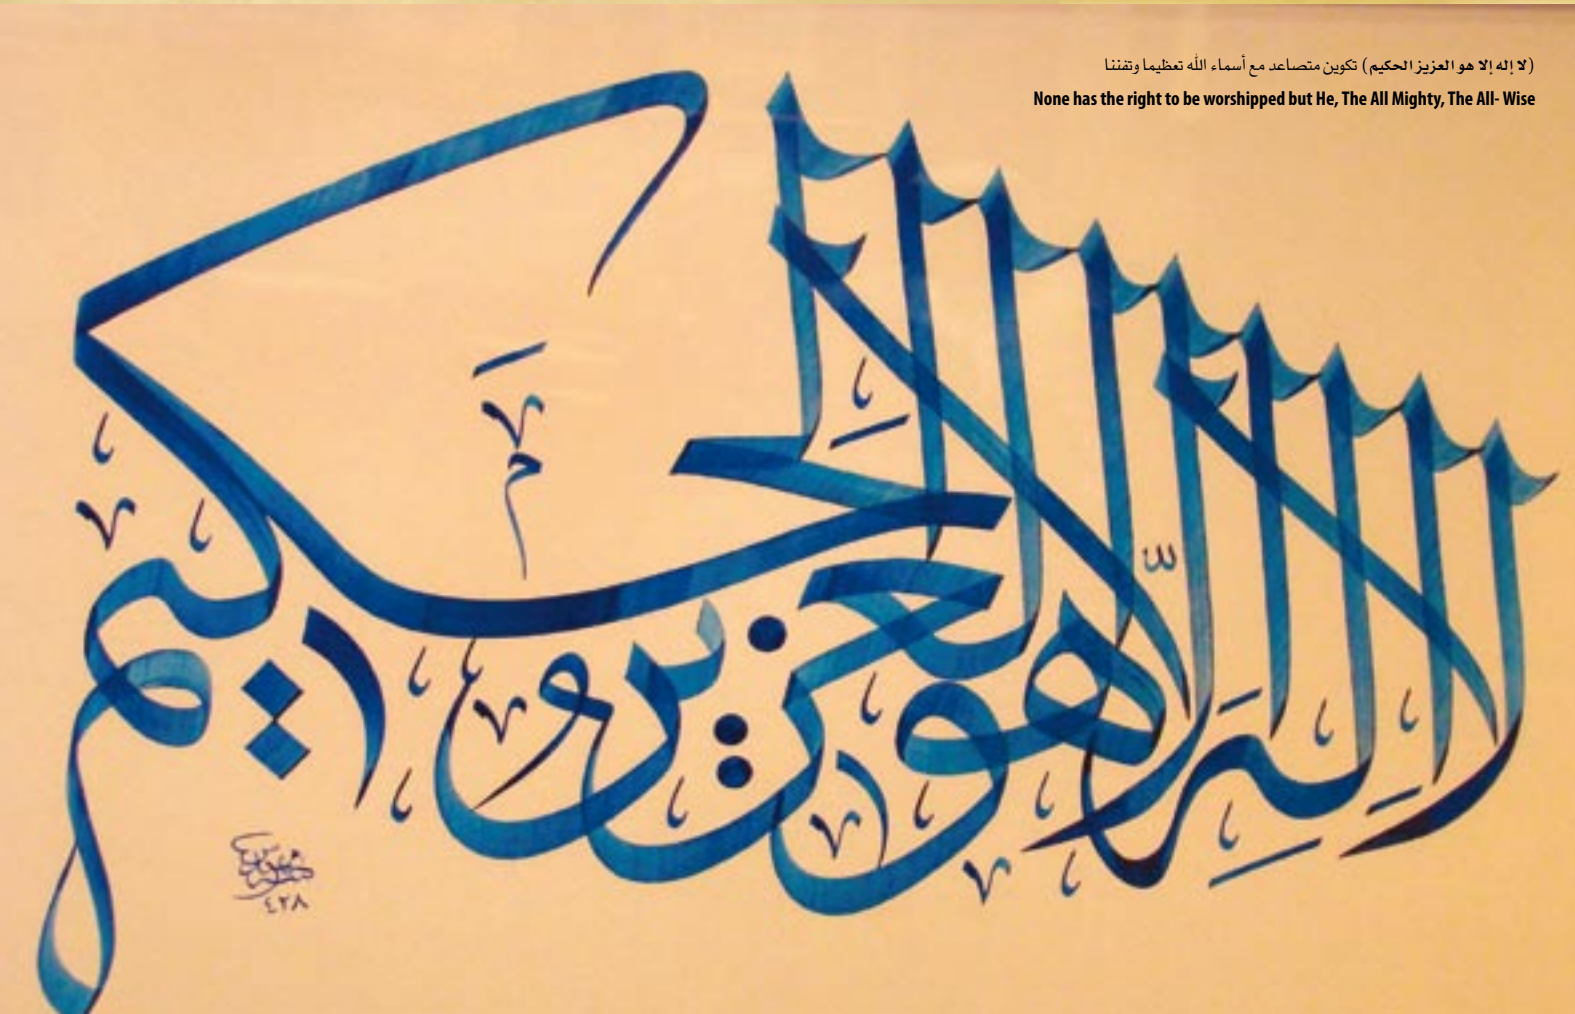 (لا إله إلا هو العزيز الحكيم) تكوين متصاعد مع أسماء الله تعظيما وتفننا
None has the right to be worshipped but He, The All Mighty, The All- Wise
لا إله إلا هو العزيز الحكيم
٤٢٨